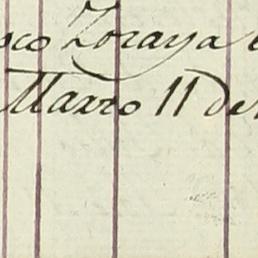 sco Zoraya
Marzo 11 de